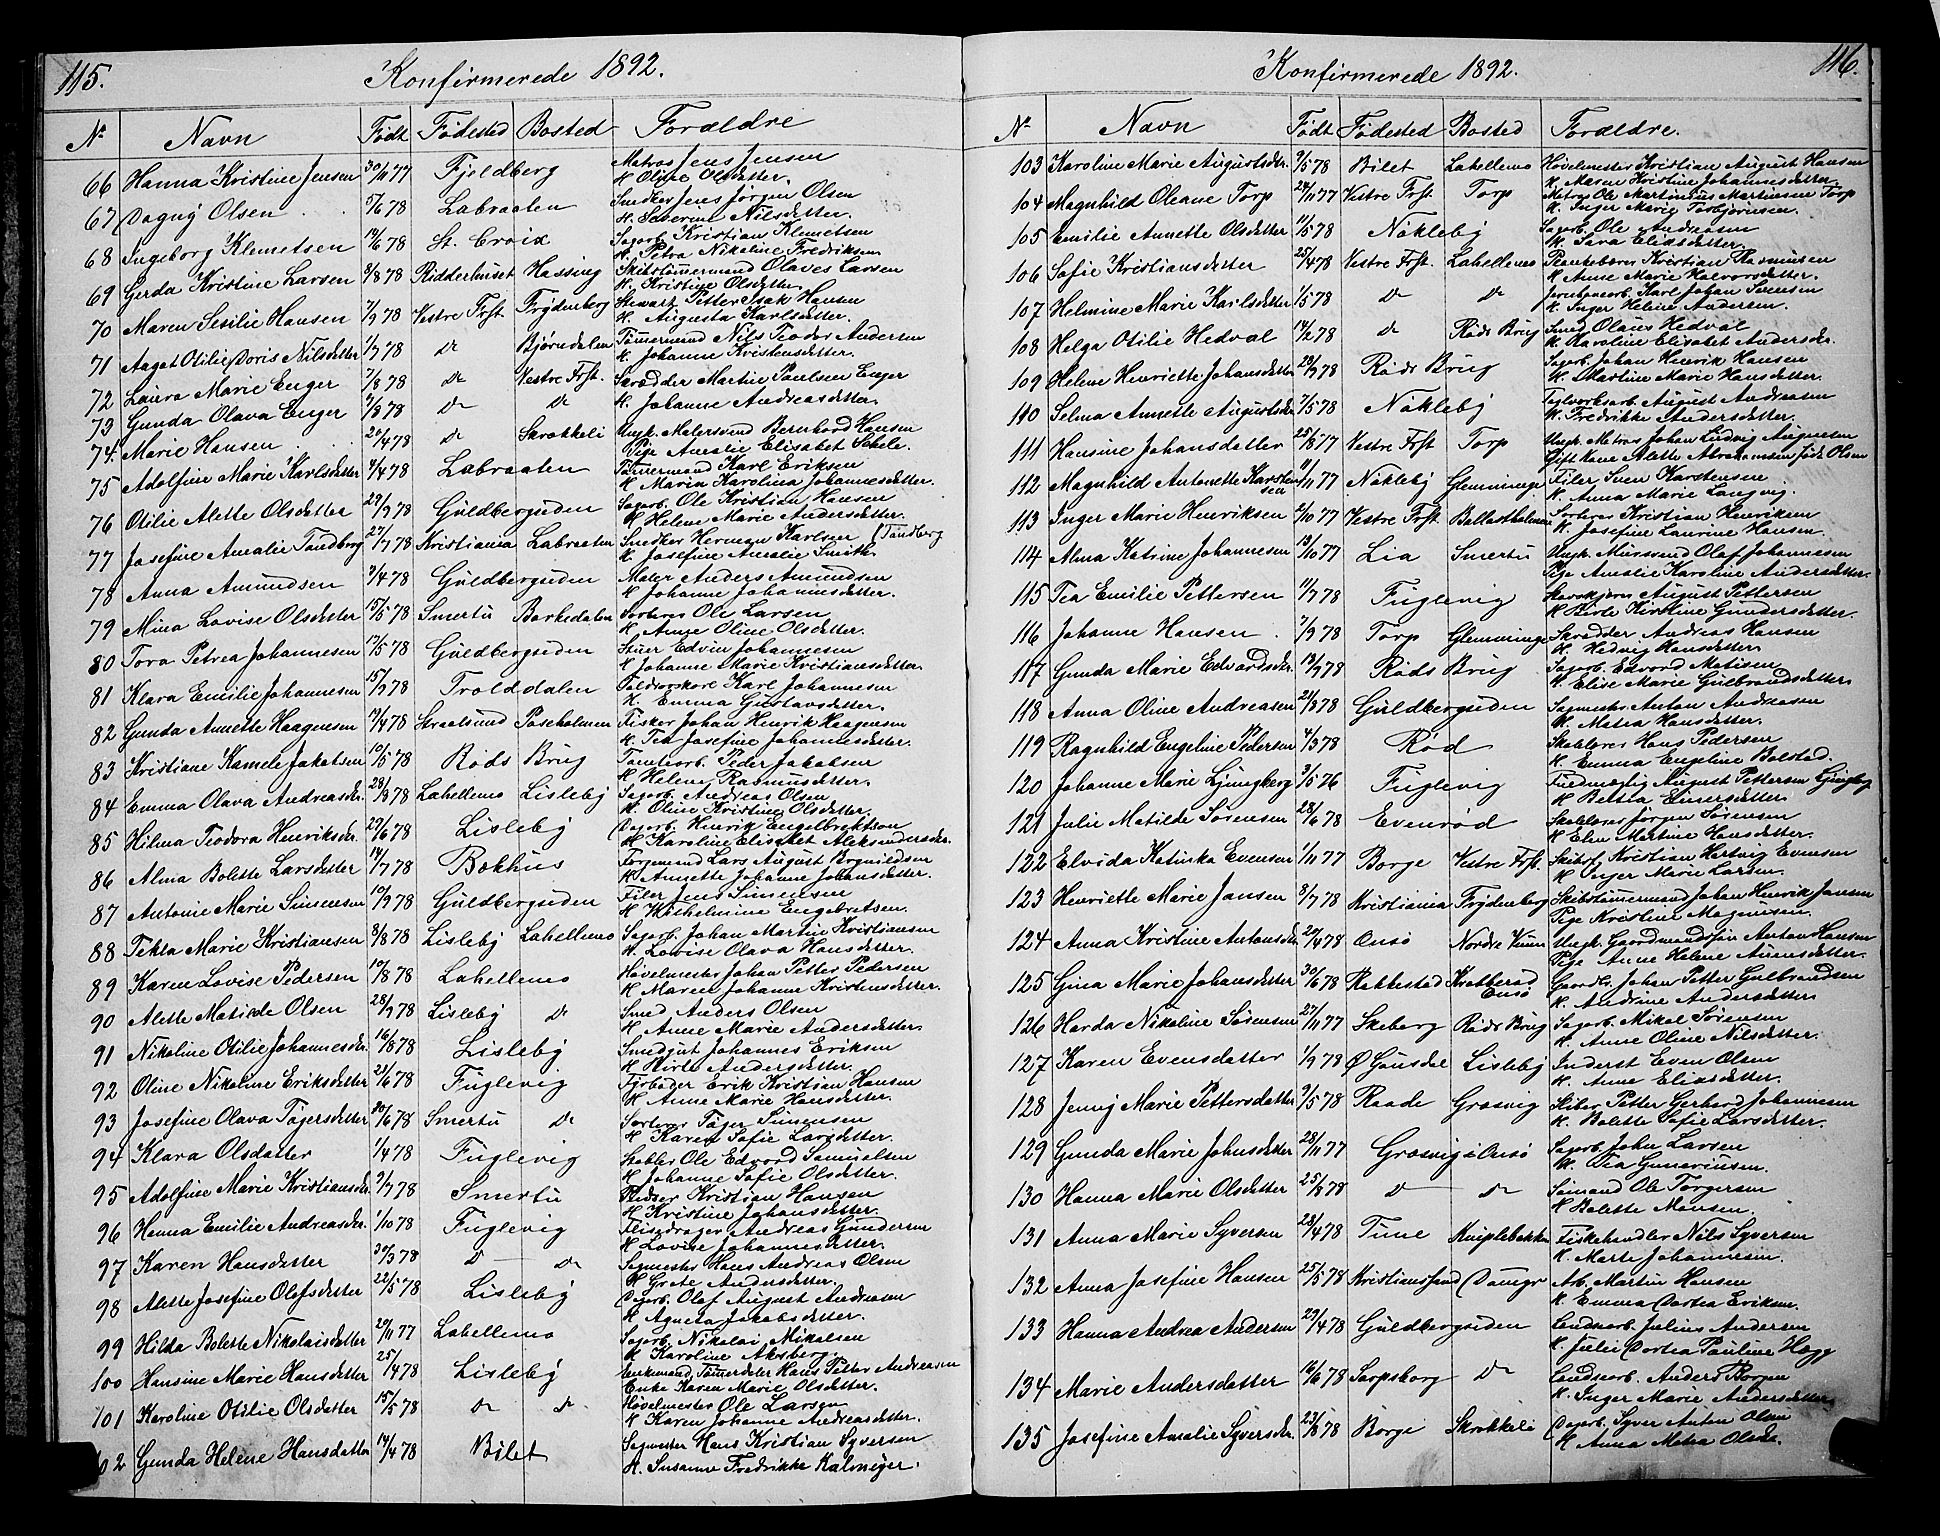 115.
Konfirmerede 1892.
Nr. Navn Født Fødested Bosted Forældre
66 Hanna Kristine Jensen 30/11 77 Fjeldberg Matros Jens Jensen
K. Oline Olsdetter.
67 Dagny Olsen 5/6 78 Labraaten Snedker Jens Jørgen Olsen
K. Severine Nilsdetter.
68 Ingeborg Klemetsen 19/6 78 St. Croix Sagarb. Kristian Klemetsen
K. Petra Nikoline Fredriksen
69 Gerda Kristine Larsen 8/8 78 Ridderhuset Hassing Skibstømmermand Olaves Larsen
K. Kristine Olsdetter.
70 Maren Sesilie Hansen 7/9 78 Vestre Frst. Frydenberg Stewart Petter Isak Hansen
K. Augusta Karlsdetter.
71 Aagot Otilie Doris Nilsdetter 1/7 78 do Bjørndalen Tømmermand Nils Teodor Andersen
K. Johanne Kristensdetter.
72 Laura Marie Enger 7/8 78 do Vestre Frst. Skrædder Martin Paulsen Enger
73 Gunda Olava Enger 7/8 78 do do K. Johanne Andreasdetter.
74 Marie Hansen 26/4 78 do Skrokkeli Ungk. Malersvend Bernhard Hansen
Pige Amalie Elisabet Schele.
75 Adolfine Marie Karlsdetter 4/4 78 Labraaten Tømmermand Karl Eriksen
K. Maria Karolina Johannesdetter.
76 Otilie Alette Olsdetter 22/9 78 Guldberguden Sagarb. Ole Kristian Hansen
K Helene Marie Andersdetter.
77 Josefine Amalie Tandberg 27/7 78 Kristiania Labraaten Snedker Herman Karlsen (Tandberg
K Josefine Amalie Smith.
78 Anna Amundsen 9/4 78 Guldberguden Maler Anders Amundsen
K Johanne Johannesdetter.
79 Mina Lovise Olsdetter 15/5 78 Smertu Barkedalen Sorterer Ole Larsen
K Anne Oline Olsdetter.
80 Tora Petrea Johannesen 17/5 78 Guldberguden Stuer Edvin Johannesen
K Johanne Marie Kristiansdetter.
81 Klara Emilie Johannesen 15/9 78 Trolddalen Karl Johannesen
K. Emma Gustavsdetter.
82 Gunda Annette Haagensen 19/4 78 Skaalsund Paseholmen Fisker Johan Henrik Haagensen
K. Tea Josefine Johannesdetter.
83 Kristiane Kamele Jakobsen 10/5 78 Røds Brug Tomtearb. Peder Jakobsen
K Helene Rasmusdetter.
84 Emma Olava Andreasdr. 28/3 78 Lahellemo Lisleby Sagarb. Andreas Olsen
K. Oline Kristine Olsdetter.
85 Hilma Teodora Henriksdr. 23/6 78 Lisleby Dagarb. Henrik Engelbrektsen
K Karoline Elisabet Aleksandersdr.
86 Alma Bolette Larsdetter 14/7 78 Bækhus Færgemand Lars August Brynildsen
K Annette Johanne Johansdetter.
87 Antonie Marie Simensen 10/9 78 Guldberguden Filer Jens Simensen
K Wilhelmine Engebretsen.
88 Tekla Marie Kristiansen 8/8 78 Lisleby Lahellemo Sagarb. Johan Martin Kristiansen
K. Lovise Olava Hansdetter.
89 Karen Lovise Pedersen 10/8 78 Lahellemo Høvelmester Johan Petter Pedersen
K Maren Johanne Kristensdetter.
90 Alette Matilde Olsen 28/9 78 Lisleby do Smed Anders Olsen
K Anne Marie Andersdetter.
91 Nikoline Otilie Johannesdr. 16/8 78 Lisleby Smedgut Johannes Eriksen
K Kirte Andersdetter.
92 Oline Nikoline Eriksdetter 21/6 78 Fuglevig Fyrbøder Erik Kristian Hansen
K Anne Marie Hansdetter.
93 Josefine Olava Tøgersdetter 20/6 78 Smertu do Sorterer Tøger Simensen
K Karen Sofie Larsdetter.
94 Klara Olsdatter 1/4 78 Fuglevig Stabler Ole Edvard Samuelsen
K Johanne Sofie Olsdetter.
95 Adolfine Marie Kristiansdr. 9/7 78 Smertu Kristian Hansen
K Kristine Johansdetter.
96 Hanna Emilie Andreasdr. 1/10 78 Fuglevig Flisedrager Andreas Gundersen
K Lovise Johannesdetter.
97 Karen Hansdetter 30/3 78 do do Sagmester Hans Andreas Olsen
K Grete Andersdetter.
98 Alette Josefine Olafsdetter 22/5 78 Lisleby Dagarb. Olaf August Andreasen
K Agnete Jakobsdetter.
99 Hilda Bolette Nikolaisdetter 20/11 77 Lahellemo Sagarb. Nikolai Mikalsen
K Karoline Aksberg.
100 Hansine Marie Hansdetter 25/4 78 Lisleby Enkemand, Tømerdeler Hans Petter Andreasen
Enke Karen Marie Olsdetter.
101 Karoline Otilie Olsdatter 15/5 78 do do Høvelmester Ole Larsen
K Karen Johanne Andreasdetter.
102 Gunda Helene Hansdatter 14/4 78 Bilet Sagmester Hans Kristian Syversen
K. Susanne Fredrikke Kalvneger.
116.
Konfirmerede 1892.
Nr Navn Født Fødested Bosted Forældre.
103 Karoline Marie Augustsdr. 9/5 78 Bilet Lahellemo Høvelmester Kristian August Hansen
K. Maren Kristine Johannesdetter.
104 Magnhild Oleane Torp 24/11 77 Vestre Frst. Torp Matros Ole Martinius Martinsen Torp
K. Inger Marie Torbjørnsen.
105 Emilie Annette Olsdetter 11/5 78 Nøkleby Sagarb. Ole Andreasen
K. Sara Eliasdetter.
106 Sofie Kristiansdetter 25/4 78 Vestre Frst. Lahellemo Plankebærer Kristian Rasmussen
K Anne Marie Halvorsdetter.
107 Helmine Marie Karlsdetter 1/5 78 do do Jernbanearb. Karl Johan Svensen
K. Inger Helene Andersen.
108 Helga Otilie Hedval 14/2 78 do Røds Brug Smed Olaus Hedval
K Karoline Elisabet Andersdr.
109 Helene Henriette Johansdetter 28/9 78 Røds Brug Sagarb. Johan Henrik Hansen
K. Martine Marie Hansdetter.
110 Selma Annette Augustsdr 2/5 78 Nøkleby Teglverksarb. August Andreasen
K. Fredrikke Andersdetter.
111 Hansine Johansdatter 25/8 77 Vestre Frst Torp Ungk. Matros Johan Ludvig Augnesen
Gift Kone Alette Abrahamsen født Olsen
112 Magnhild Antonette Karsten
sen 11/11 77 Nøkleby Glemminge Filer Sven Karstensen
K. Anna Marie Langvig.
113 Inger Marie Henriksen 2/10 77 Vestre Frst. Ballastholmen Sorterer Kristian Henriksen
K. Josefine Laurine Hansen.
114 Alma Katrine Johannesen 13/10 77 Lia Smertu Ungk. Mursvend Olaf Johannesen
Pige Amalie Karoline Andersdetter.
115 Tea Emilie Pettersen 11/7 78 Fuglevig August Pettersen
K Kirte Kirstine Gundersdetter.
116 Johanne Hansen 7/9 78 Torp Glemminge Skrædder Andreas Hansen
K. Hedvig Hansdetter.
117 Gunda Marie Edvardsdr. 19/9 78 Røds Brug Sagarb. Edvard Matisen
K. Elise Marie Gulbrandsdetter.
118 Anna Oline Andreasen 21/3 78 Guldberguden Sagmester Anton Andreasen
K. Matea Hansdetter.
119 Ragnhild Engeline Pedersen 4/3 78 Rød Skolelærer Hans Pedersen
K. Emma Engeline Bolstad.
120 Johanne Marie Ljungberg 3/5 76 Fuglevig Fuldmægtig August Pettersen Ljungberg
K Betsea Einersdetter.
121 Julie Matilde Sørensen 28/6 78 Evenrød Skolelærer Jørgen Sørensen
K Elen Martine Hansdetter.
122 Elvida Katinka Evensen 1/11 77 Borge Vestre Frst. Skibsfr. Kristian Hartvig Evensen
K Inger Marie Larsen.
123 Henriette Marie Jansen 8/7 78 Kristiania Frydenberg Skibstømmermand Johan Henrik Jansen
Pige Kristine Magnussen.
124 Anna Kristine Antonsdr. 27/4 78 Onsø Nordre Ungk. Gaardmandssøn Anton Hansen
Pige Anne Helene
125 Gina Marie Johansdetter 30/6 78 Rakkestad Krabberød
Onsø Gaardbr. Johan Petter Gulbrandsen
K. Andrine Andersdetter
126 Harda Nikoline Sørensen 27/11 77 Skeberg Røds Brug Sagarb. Mikal Sørensen
K. Anne Oline Nilsdetter.
127 Karen Evensdetter 1/9 78 Ø Gausdal Lisleby Inderst Even Olsen
K. Anne Eliasdetter.
128 Jenny Marie Pettersdatter 9/5 78 Raade Græsvig Skiber Petter Gerhard Johannesen
K. Bolette Sofie Larsdetter.
129 Gunda Marie Johnsdetter 28/11 77 Græsvig i Onsø Sagarb. John Larsen
K. Tea Gunerinsen.
130 Hanna Marie Olsdetter 25/8 78 do do Sømand Ole Torgersen
K Bolette Monsen.
131 Anna Marie Syversen 28/4 78 Tune Kniplebakken Fiskehandler Nils Syversen
K. Marte Johannesen.
132 Anna Josefine Hansen 25/5 78 Kristianssand Damgr Arb. Martin Hansen
K. Emma Dortea Eriksen.
133 Hanna Andrea Andersen 23/4 78 Guldberguden Landsarb. Julius Andersen
K. Julie Dortea Pauline Hagg
134 Marie Andersdatter 16/6 78 Sarpsborg do Landsarb. Anders Borgen
K. Inger Marie Andersdetter
135 Josefine Amalie Syversdr. 23/8 78 Borge Skrokkeli Dagarb. Syver Anton Olsen
K Anna Matea Olsdr.